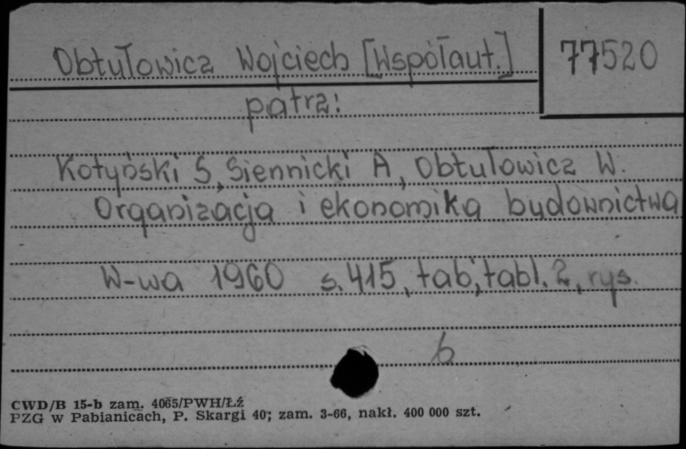 Obtułowicz Wojciech [Współaut.] 77520
patrz:
Kotyński S, Siennicki A, Obtułowicz W.
Organizacja i ekonomika budownictwa
W-wa 1960 s. 415, tab, tabl. 2, rys.
b
CWD/B 15-b zam. 4065/PWH/Łź
PZG w Pabianicach, P. Skargi 40; zam. 3-66, nakł. 400 000 szt.